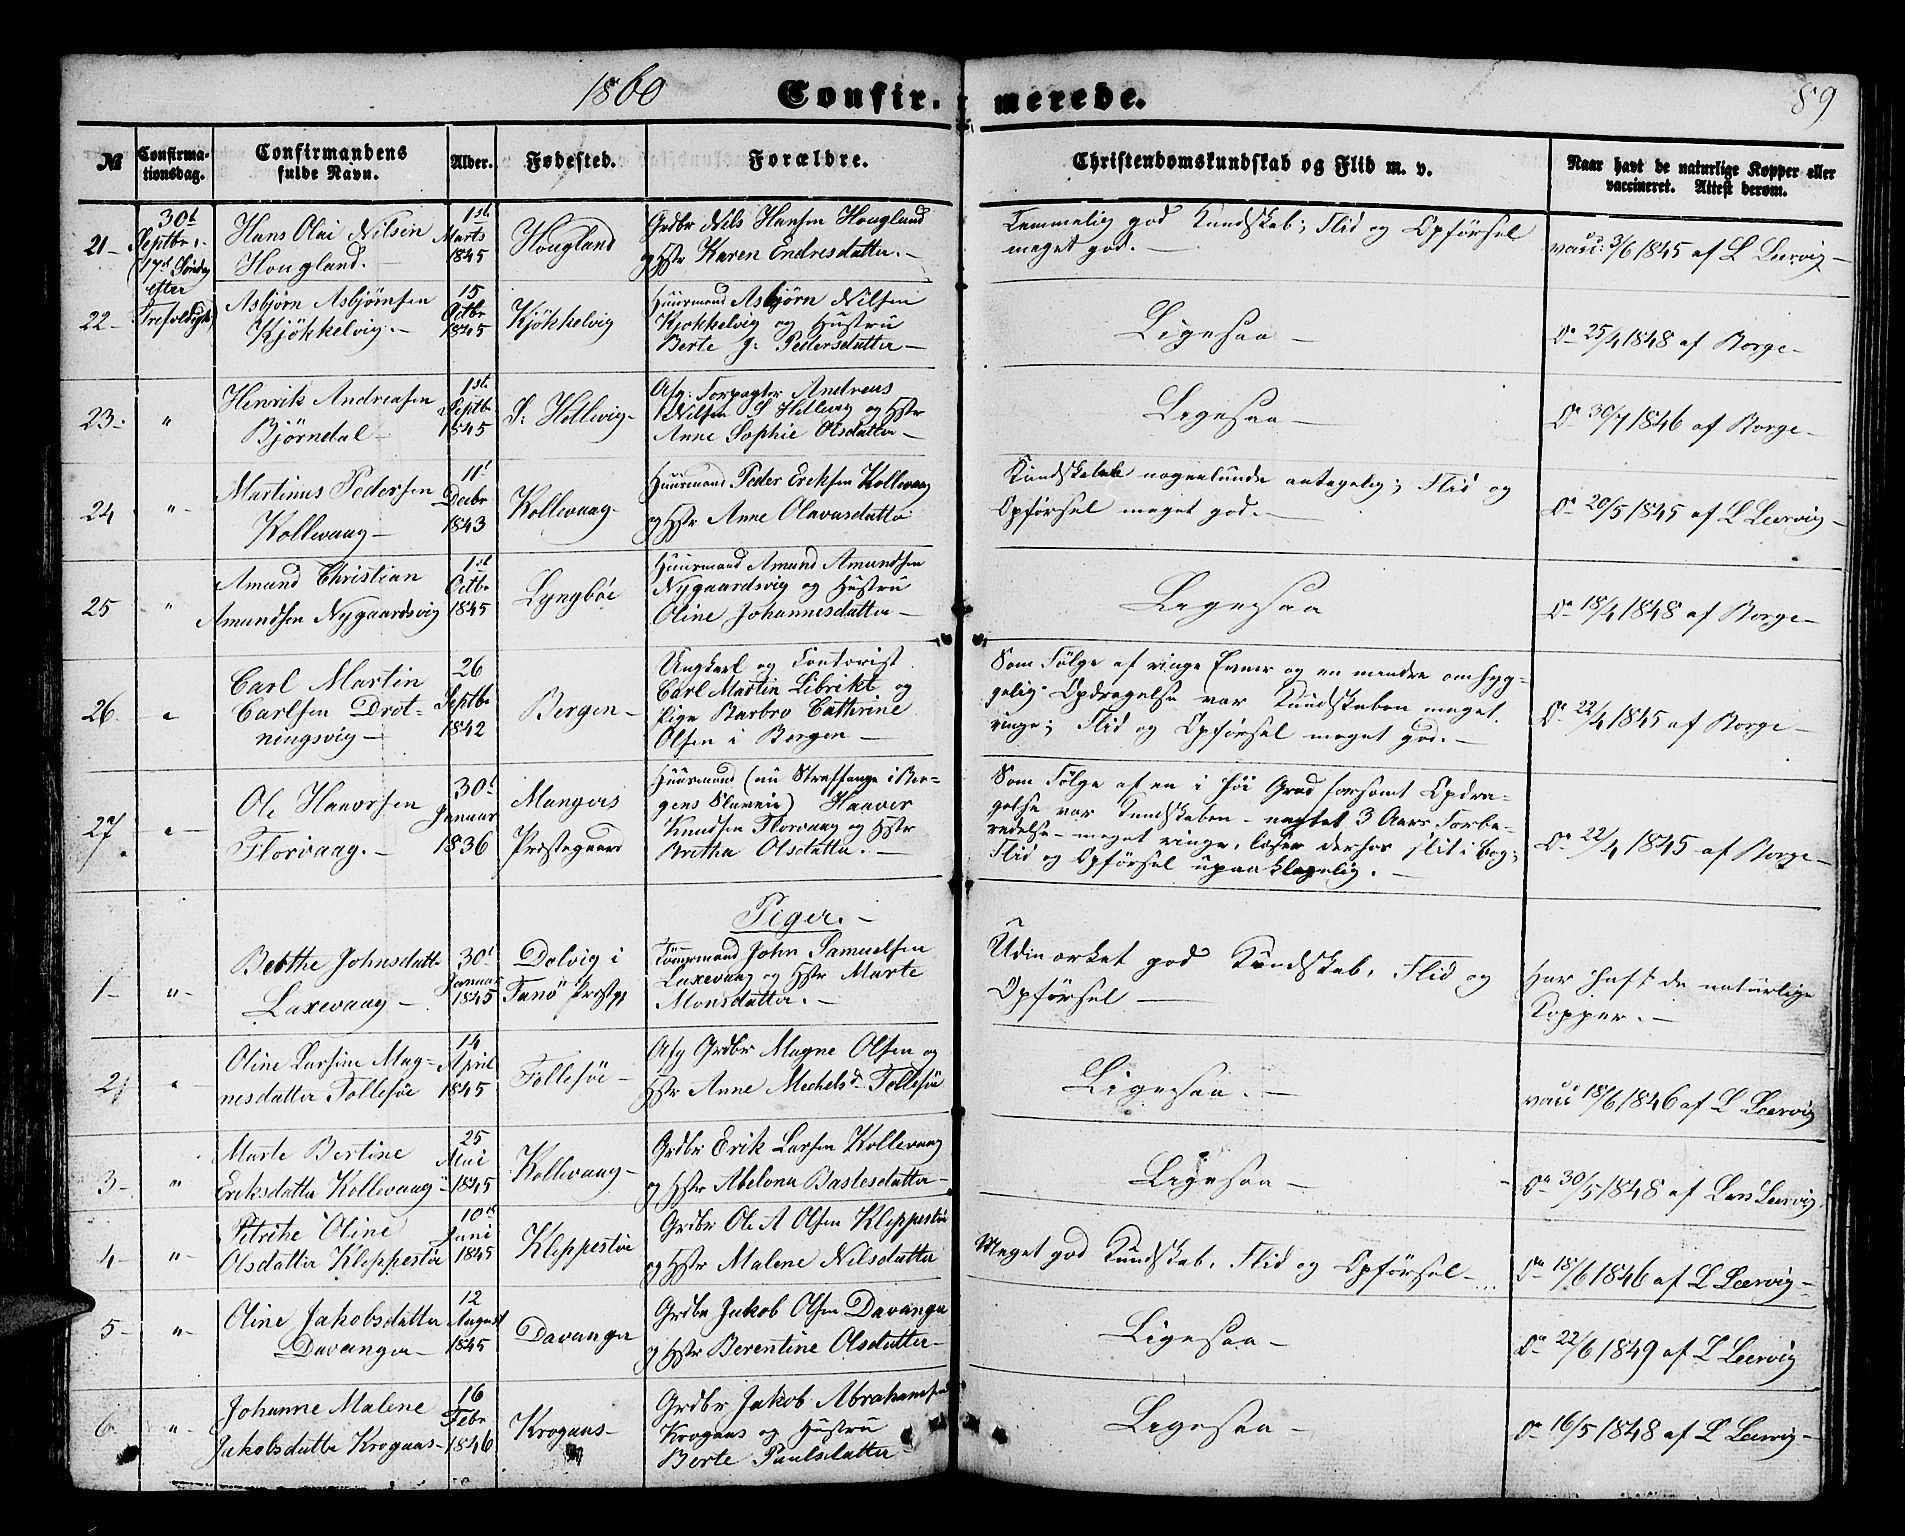 1860 Confirmerede. 89
№ Confirmationsdag. Confirmandens fulde Navn. Alder. Fødested. Forældre. Christendomskundskab og Flid m. v. Naar havt de naturlige Kopper eller vaccineret. Attest derom.
21 30t Septbr 17d Søndag efter Trefoldigh
Hans Olai Nilsen
Hougland.
1st Marts 1845
Hougland
Grdbr Nils Hansen Hougland
og Hstr Karen Endresdatter.
Temmelig god Kundskab; Flid og Opførsel
meget god.
vacc: 3/6 1845 af L Leervig
22
Asbjørn Asbjørnsen
Kjøkkelvig
15 Octbr 1845
Kjøkkelvig
Huusmand Asbjørn Nilsen
Kjøkkelvig og Hustru
Berte J: Pedersdatter
Ligesaa
Do 25/4 1848 af Borge
23 "
Henrik Andreasen
Bjørndal
1st Septbr 1845
S: Hillevig
Afg: Forpagter Andreas
Nilsen S Hillevig og Hstr
Anne Sophie Olsdatter
Ligesaa
Do 30/7 1846 af Borge
24 "
Martinus Pedersen
Kollevaag
11t Decbr 1843
Kollevaag
Huusmand Peder Eriksen Kollevaag
og Hstr Anne Olavusdatter
Kundskab nogenlunde antagelig; Flid og
Opførsel meget god.
Do 20/5 1845 af L Leervig
25 "
Amund Christian
Amundsen Nygaardsvig
1st Octbr 1845
Lyngbøe
Huusmand Amund Amundsen
Nygaardsvig og Hustru
Oline Johannesdatter
Ligesaa
Do 18/4 1848 af Borge
26 "
Carl Martin
Carlsen Drot-
ningsvig
26 Septbr 1842
Bergen
Ungkarl og Contorist
Carl Martin Librikt og
Pige Barbro Cathrine
Olsen i Bergen
Som Følge af ringe Evner og en mindre omhyg-
gelig Opdragelse var Kundskaben meget
ringe; Flid og Opførsel meget god.
Do 22/4 1845 af Borge
27 "
Ole Haavrsen
Florvaag.
30t Januar 1836
Mangers
Præstegaard
Huusmand (nu Straffange i Ber-
gens Slaverie) Haaver
Knudsen Florvaag og Hstr
Britha Olsdatter.
Som Følge af en i høi Grad forsømt Opdra-
gelse var Kundskaben - uagtet 3 Aars Forbe-
redelse - meget ringe, læser derhos slet i Bog;
Flid og Opførsel upaaklagelig.
Do 22/4 1845 af Borge
Piger.
1 "
Berthe Johnsdatter
Laxevaag
30t Januar 1845
Dolvig i
Fanø Præstgj
Tømrmand John Samuelsen
Laxevaag og Hstr Marte
Monsdatter.
Udmærket god Kundskab, Flid og
Opførsel
Har haft de naturlige
Kopper.
2 "
Oline Larsine Mag-
nesdatter Follesøe
14 April 1845
Follesøe
Afg Grdbr Magne Olsen og
Hstr Anne Mechelsd. Follesøe
Ligesaa.
vacc 18/6 1846 af L Leervig
3 "
Marte Bertine
Eriksdatter Kollevaag
25 Mai 1845
Kollevaag
Grdbr Erik Larsen Kollevaag
og Hstr Abelona Bastesdatter
Ligesaa
Do 30/5 1848 af Lars Leervig
4 "
Oline
Olsdatter Kleppestøe
10de Juni 1845
Kleppestøe
Grdbr Ole A Olsen Kleppestøe
og Hstr Malene Nilsdatter
Meget god Kundskab, Flid og Opførsel
Do 18/6 1846 af L Leervig
5 "
Oline Jakobsdatter
Davanger
12 August 1845
Davanger
Grdbr Jakob Olsen Davanger
og Hstr Berentine Olsdatter
Ligesaa
Do 22/6 1849 af L Leervig
6 "
Johanne Malene
Jakobsdatter Krogaas
16 Febr 1846
Krogaas
Grdbr Jakob Abrahamsen
Krogaas og Hustru
Berte Paulsdatter
Ligesaa
Do 16/5 1848 af L Leervig